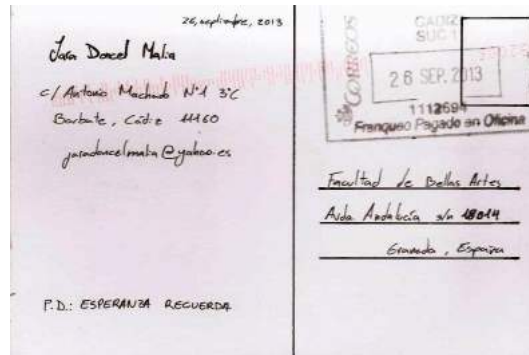 26, septiembre, 2013
Jara Doncel Malia
c/ Antonio Machado Nº1 3ºC
Barbate, Cádiz 11160
jaradoncelmalia@yahoo.es
P.D.: ESPERANZA RECUERDA
CORREOS
CADIZ
SUC 1
26 SEP. 2013
1112694
Franqueo Pagado en Oficina
Facultad de Bellas Artes
Avda Andalucía s/n 18014
Granada, España